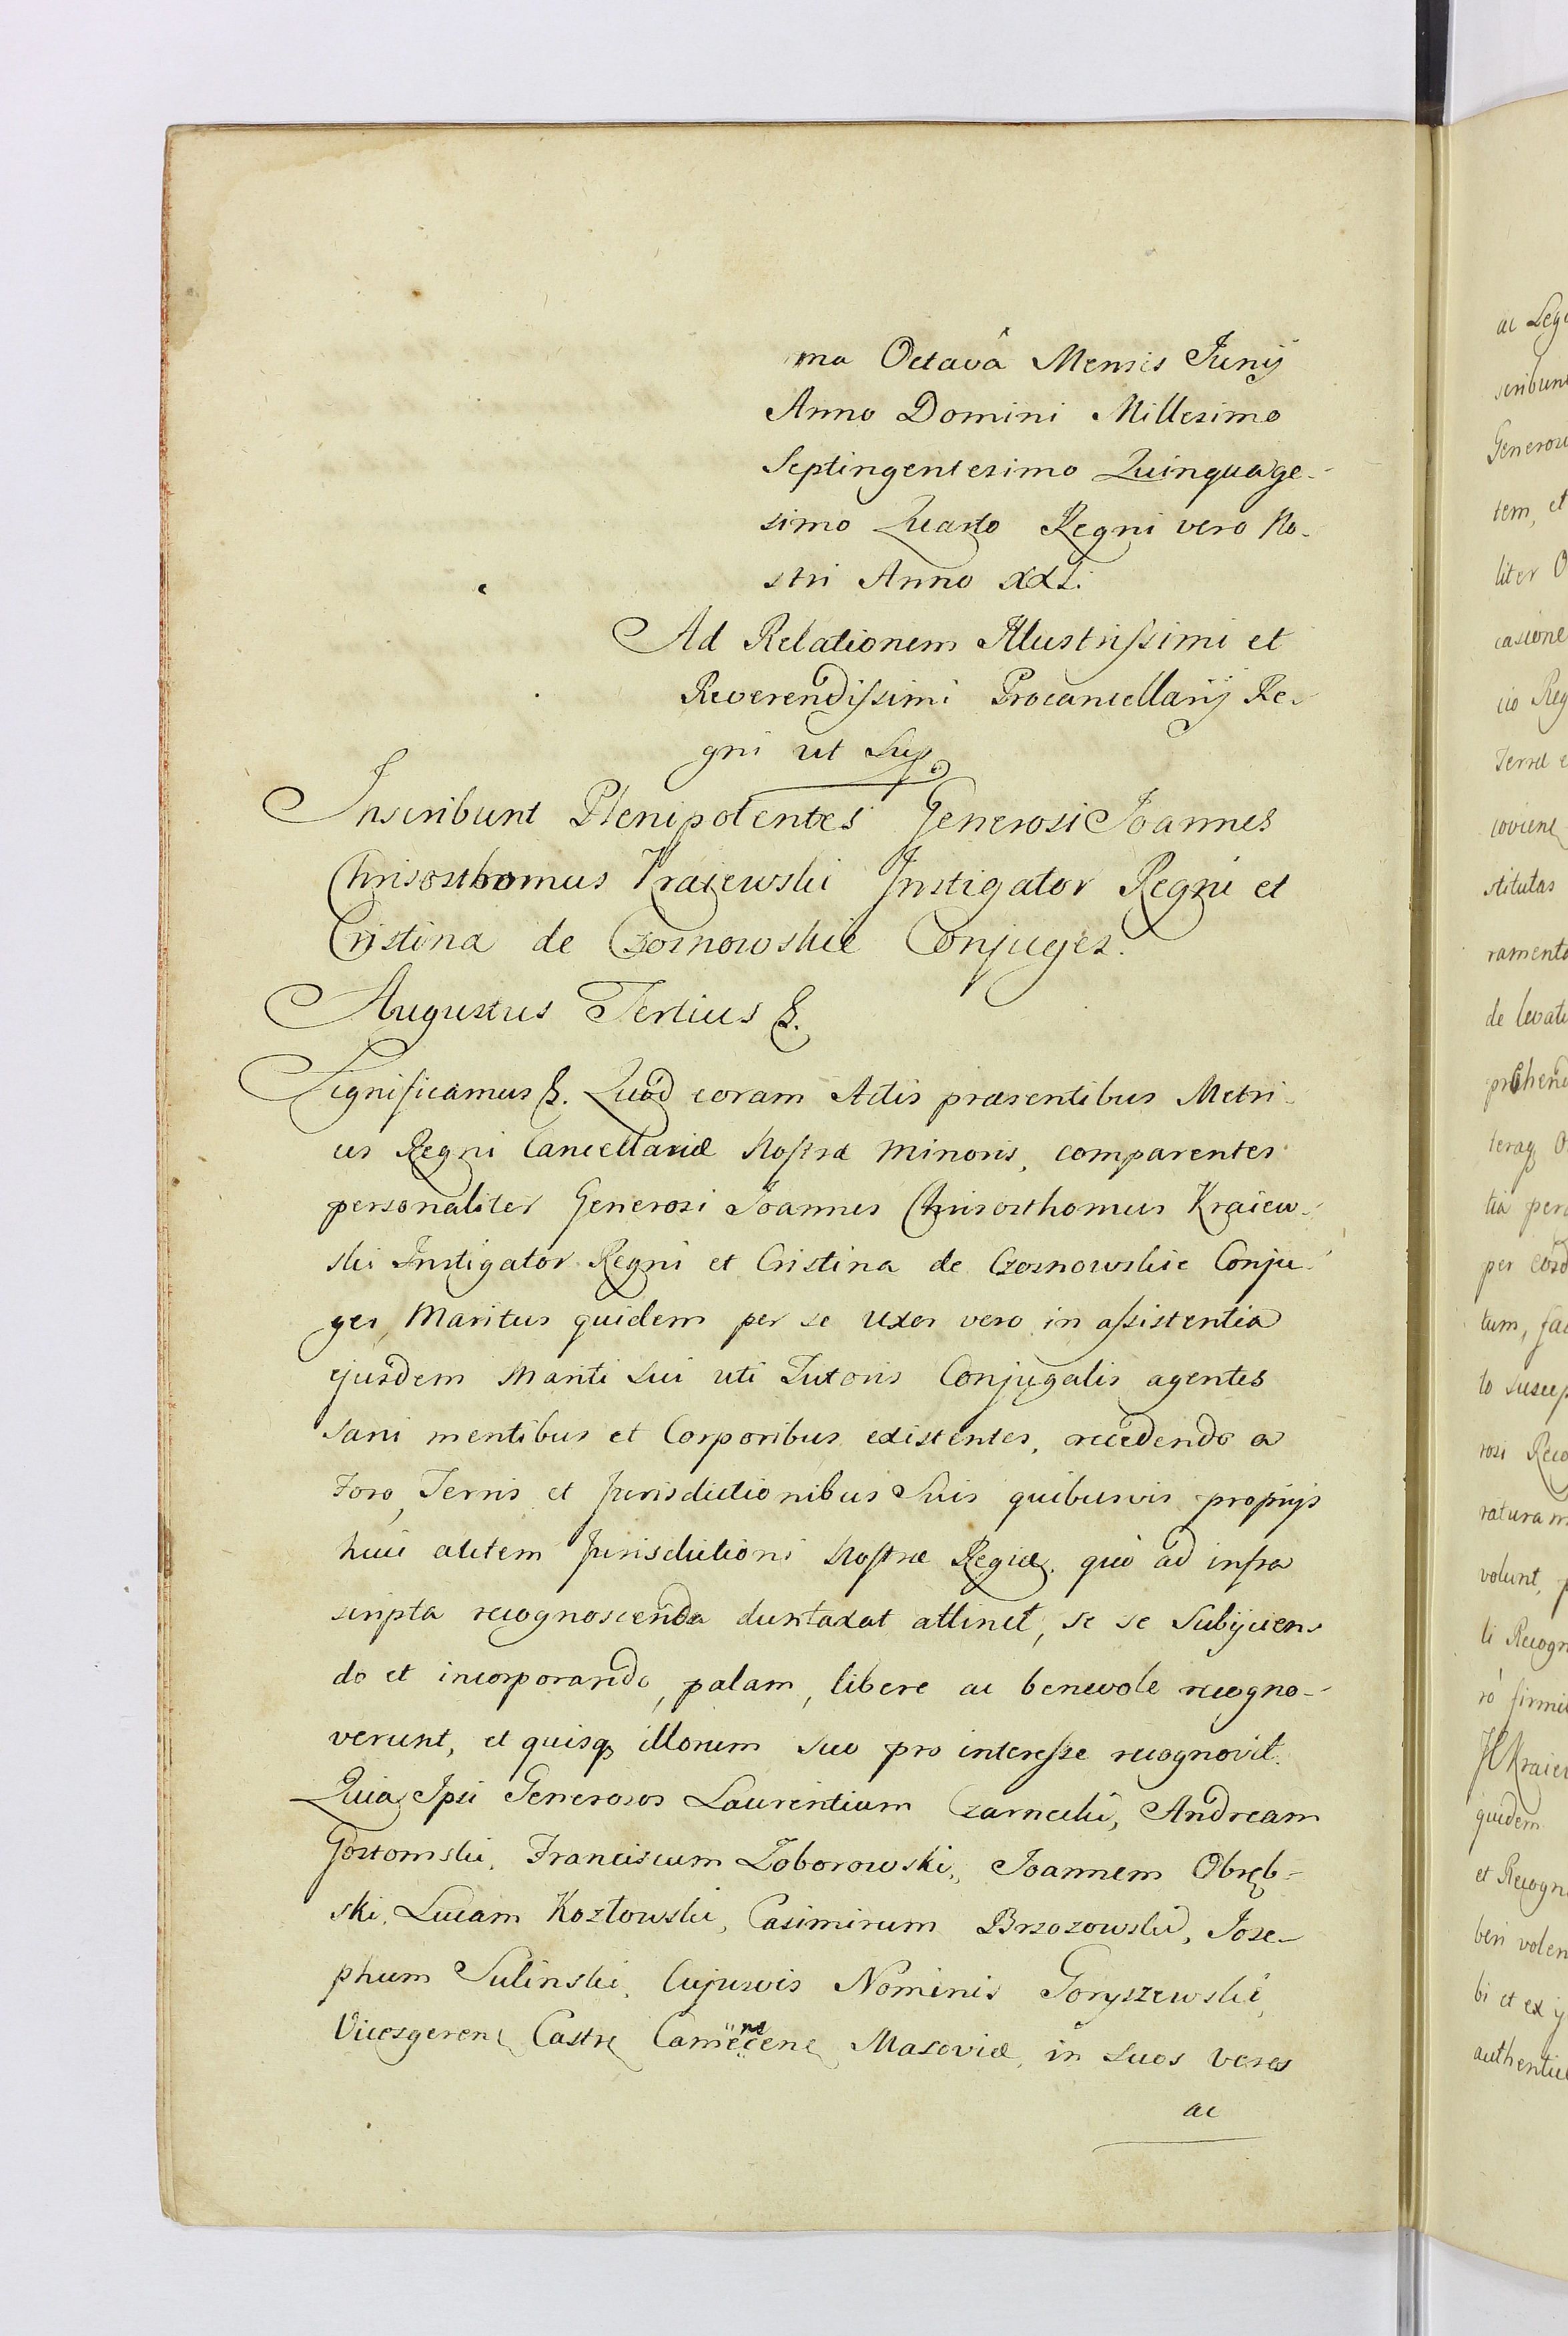 ma Octavâ Mensis Junij
Anno Domini Millesimo
Septingentesimo Quinquage-
simo Quarto Regni vero No-
stri Anno XXI.
Ad Relationem Illustrissimi et
Reverendissimi Procancellarij Re-
gni ut Sup
Inscribunt Plenipotentes Generosi Joannes
Chrisosthomus Kraiewski Instigator Regni et
Cristina de Czosnowskie Conjuges.
Augustus Tertius &.
Significamus &. Quòd coram Actis præsentibus Metri-
ces Regni Cancellariæ Nostræ Minoris, comparentes
personaliter Generosi Joannes Chrisosthomus Kraiew-
ski Instigator Regni et Cristina de Czosnowskie Conju-
ges, Maritus quidem per se Uxor vero in assistentia
ejusdem Mariti Sui uti Tutoris Conjugalis agentes
Sani mentibus et Corporibus existentes, recedendo a
Foro, Terris et Jurisdictionibus Suis quibusvis proprijs
huic autem Jurisdictioni Nostræ Regiæ, quò ad infra
scripta recognoscenda duntaxat attinet, se se Subijcien-
do et incorporando, palam, libere ac benevole recogno-
verunt, et quisq illorum suo pro interesse recognovit.
Quia Ipsi Generosos Laurentium Czarnecki, Andream
Gostomski, Franciscum Zoborowski, Joannem Obręb-
ski, Lucam Kozłowski, Casimirum Brzozowski, Jose-
phum Sulinski, Cujusvis Nominis Goryszewski,
Vicesgerenę Castrę Camenecenę Masoviæ, in suos veros
ac
ac Leg
scribunt
Generosu
tem, et
liter O
casione
cio Reg
Terræ e
stitutas
ramento
de levati
teraq O
tia pers
per eosd
tum, fac
to suscep
rosi Reco
ratura m
volunt, p
li Recogn
rò firmi
quidem
et Recogn
beri volen
bi et ex ij
authentic